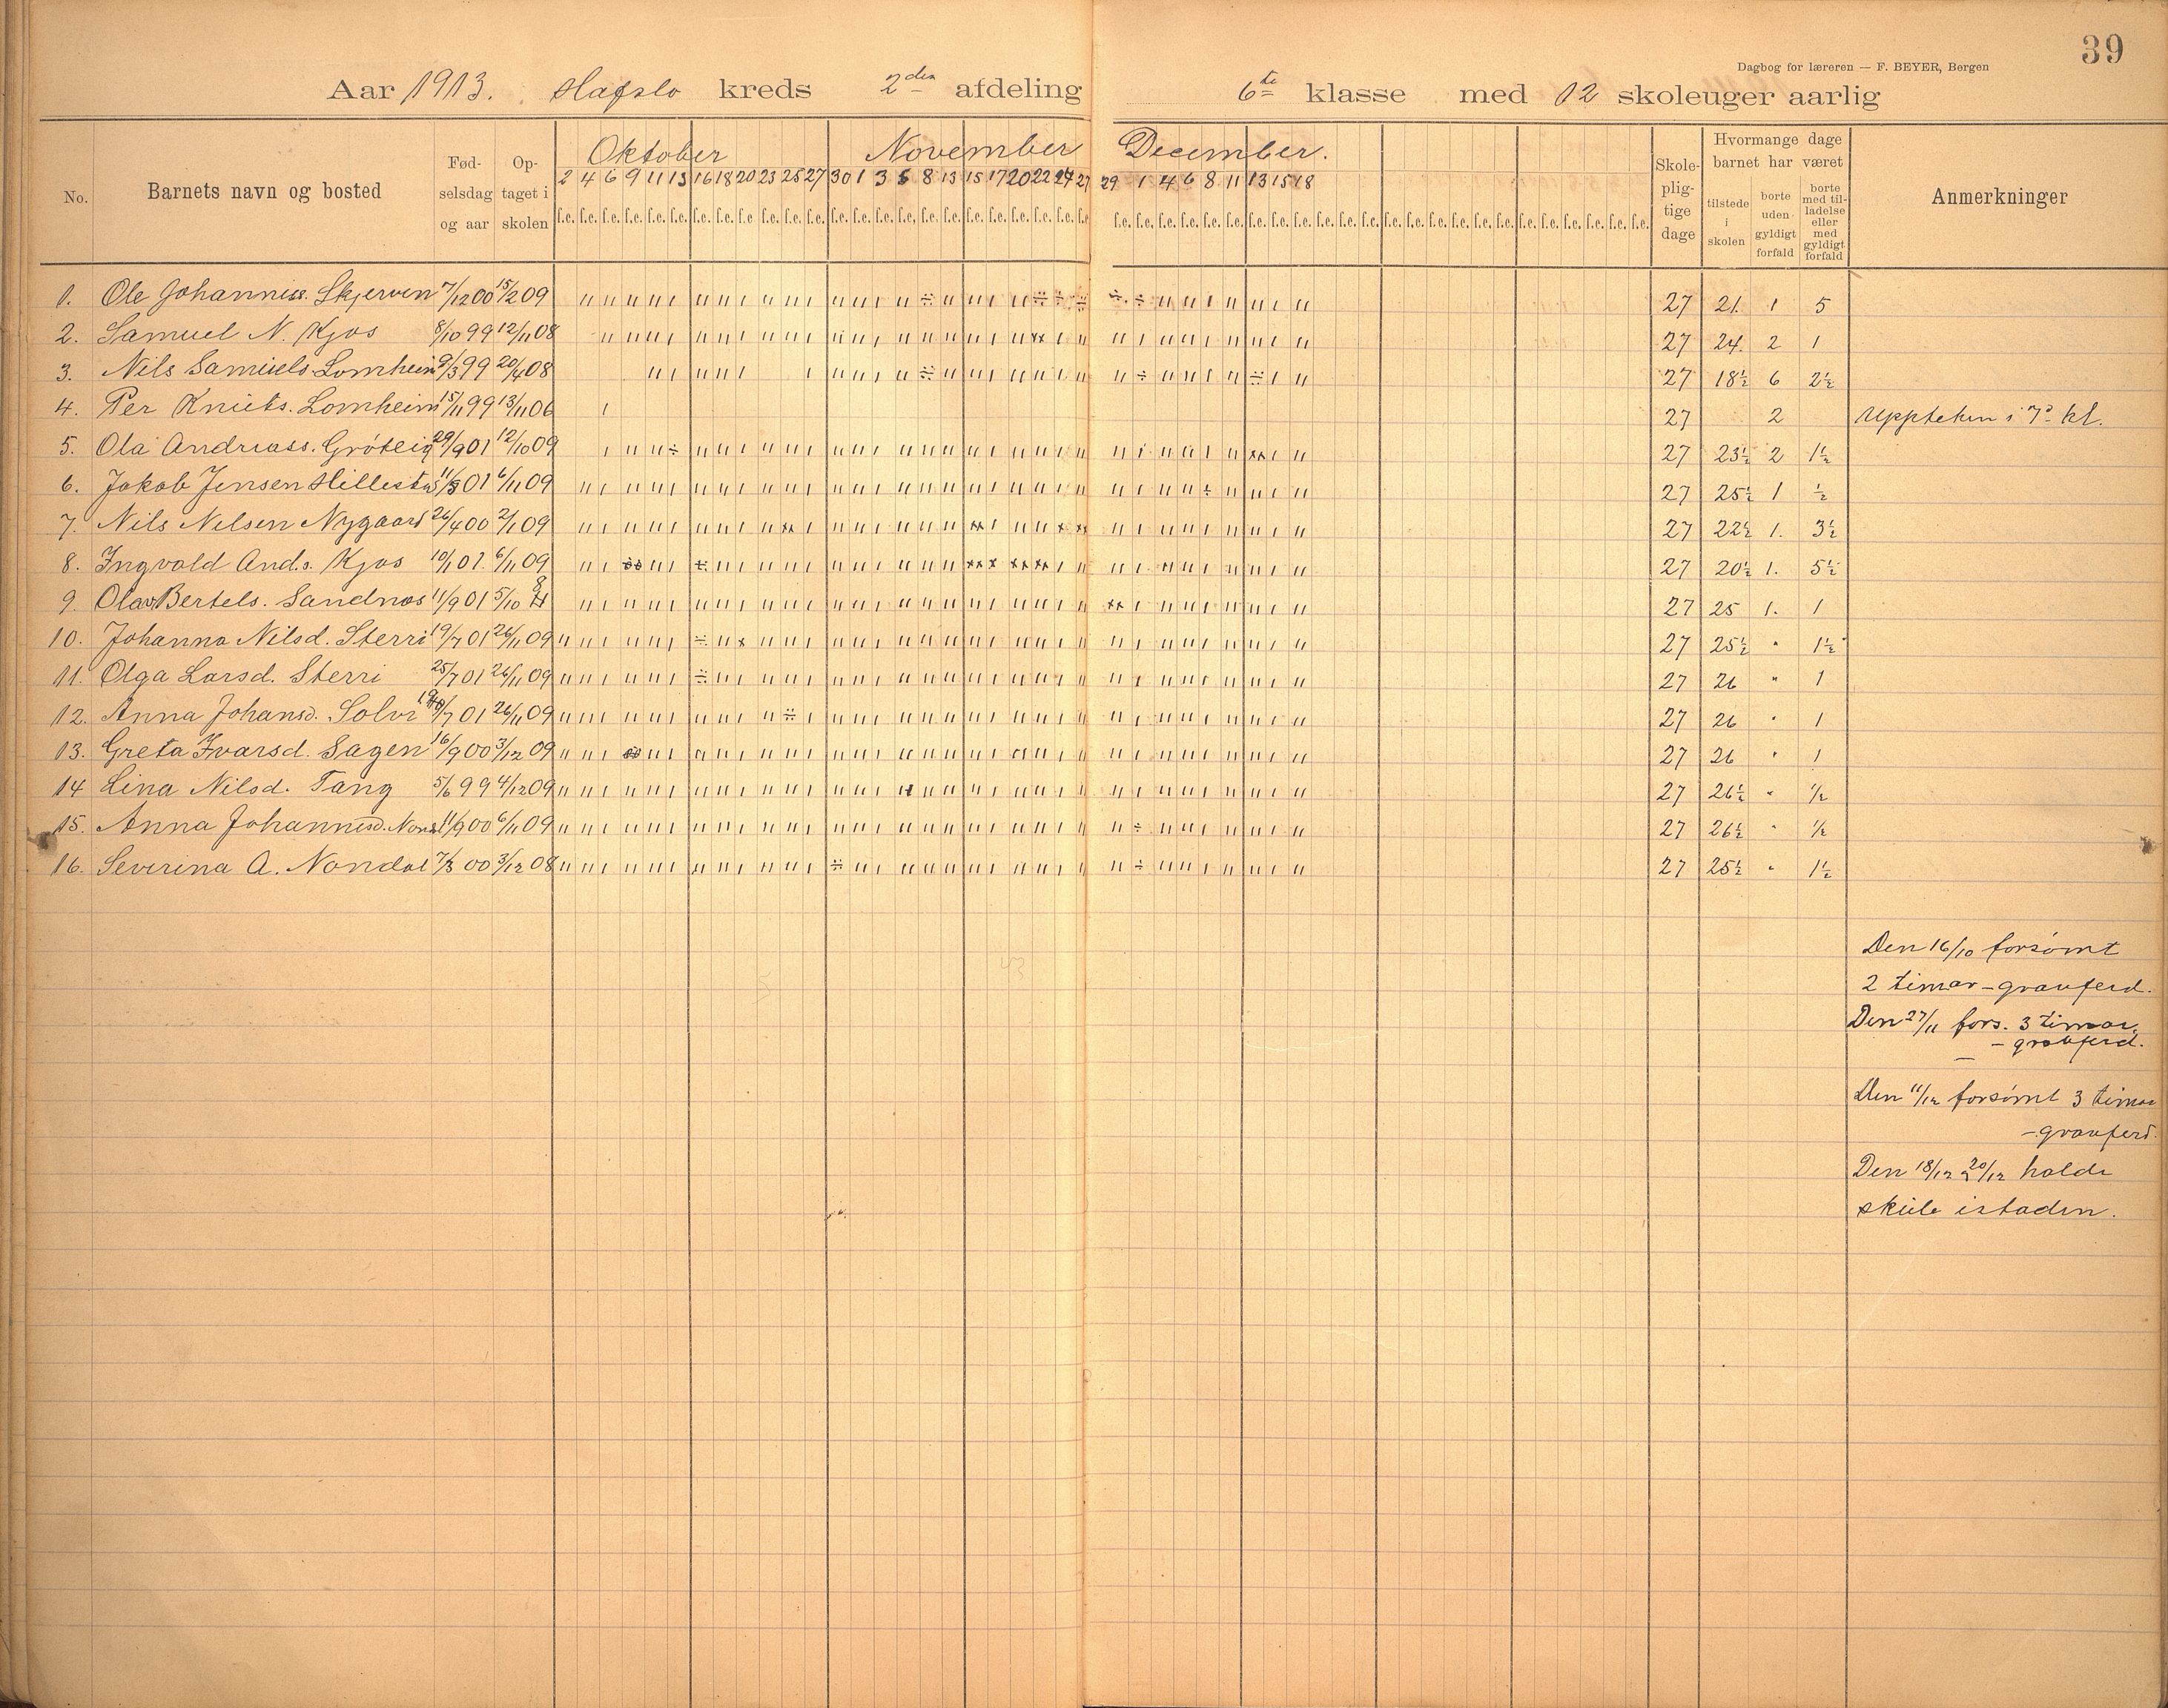 39
Dagbog for læreren — F. BEYER, Bergen
Aar 1913. Hafslo kreds 2den afdeling 6te klasse med 12 skoleuger aarlig
No. Barnets navn og bosted Fødselsdag og aar Optaget i skolen Oktober November December. Skolepligtige dage Hvormange dage barnet har været tilstede i skolen borte uden gyldigt forfald borte med tilladelse eller med gyldigt forfald Anmerkninger
2 4 6 9 11 13 16 18 20 23 25 27 30 1 3 6 8 13 15 17 20 22 24 27 29 1 4 6 8 11 13 15 18
1. Ole Johanness. Skjerven 7/12 00 15/2 09 27 21. 1 5
2. Samuel N. Kjos 8/10 99 12/11 08 27 24. 2 1
3. Nils Samuels. Lomheim 9/3 99 20/4 08 27 18½ 6 2½
4. Per Knuts. Lomheim 15/11 99 13/11 06 27 2 Uppteken i 7d kl.
5. Ola Andreass. Grøteig 29/9 01 12/10 09 27 23½ 2 1½
6. Jakob Jensen Hillestad 11/3 01 6/11 09 27 25½ 1 ½
7. Nils Nilsen Nygaard 26/4 00 2/1 09 27 22½ 1. 3½
8. Ingvald And.s. Kjos 10/1 01. 6/11 09 27 20½ 1. 5½
9. Olav Bertels. Sandnes 11/9 01 5/10 27 25 1. 1
10. Johanna Nilsd. Sterri 19/7 01 26/11 09 27 25½ " 1½
11. Olga Larsd. Sterri 25/7 01 26/11 09 27 26 " 1
12. Anna Johansd. Solvi 01 26/11 09 27 26 " 1
13. Greta Ivarsd. Sagen 16/9 00 3/12 09 27 26 " 1
14 Lina Nilsd. Tang 5/6 99 4/12 09 27 26½ " 1/2
15. Anna Johannesd. Nond. 11/9 00 6/11 09 27 26½ " 1/2
16. Severina A. Nondal 7/3 00 3/12 08 27 25½ " 1½
Den 16/10 forsömt
2 timar – gravferd.
Den 27/11 fors. 3 timar.
– gravferd.
Den 11/12 forsömt 3 timar
– gravferd.
Den 18/12 20/12 halde
skule istaden.